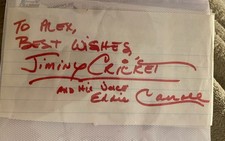 TO ALEX,
BEST WISHES,
JIMINY CRICKET
AND HIS VOICE
EDDIE CARROLL